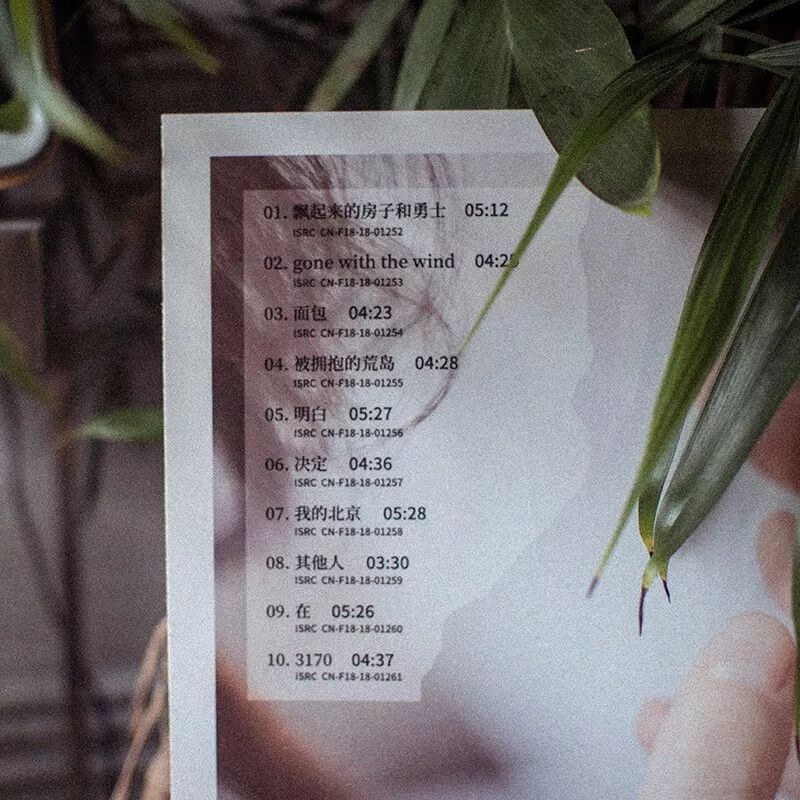 01. 飘起来的房子和勇士 05:12
ISRC CN-F18-18-01252
02. gone with the wind 04:25
ISRC CN-F18-18-01253
03. 面包 04:23
ISRC CN-F18-18-01254
04. 被拥抱的荒岛 04:28
ISRC CN-F18-18-01255
05. 明白 05:27
ISRC CN-F18-18-01256
06. 决定 04:36
ISRC CN-F18-18-01257
07. 我的北京 05:28
ISRC CN-F18-18-01258
08. 其他人 03:30
ISRC CN-F18-18-01259
09. 在 05:26
ISRC CN-F18-18-01260
10. 3170 04:37
ISRC CN-F18-18-01261